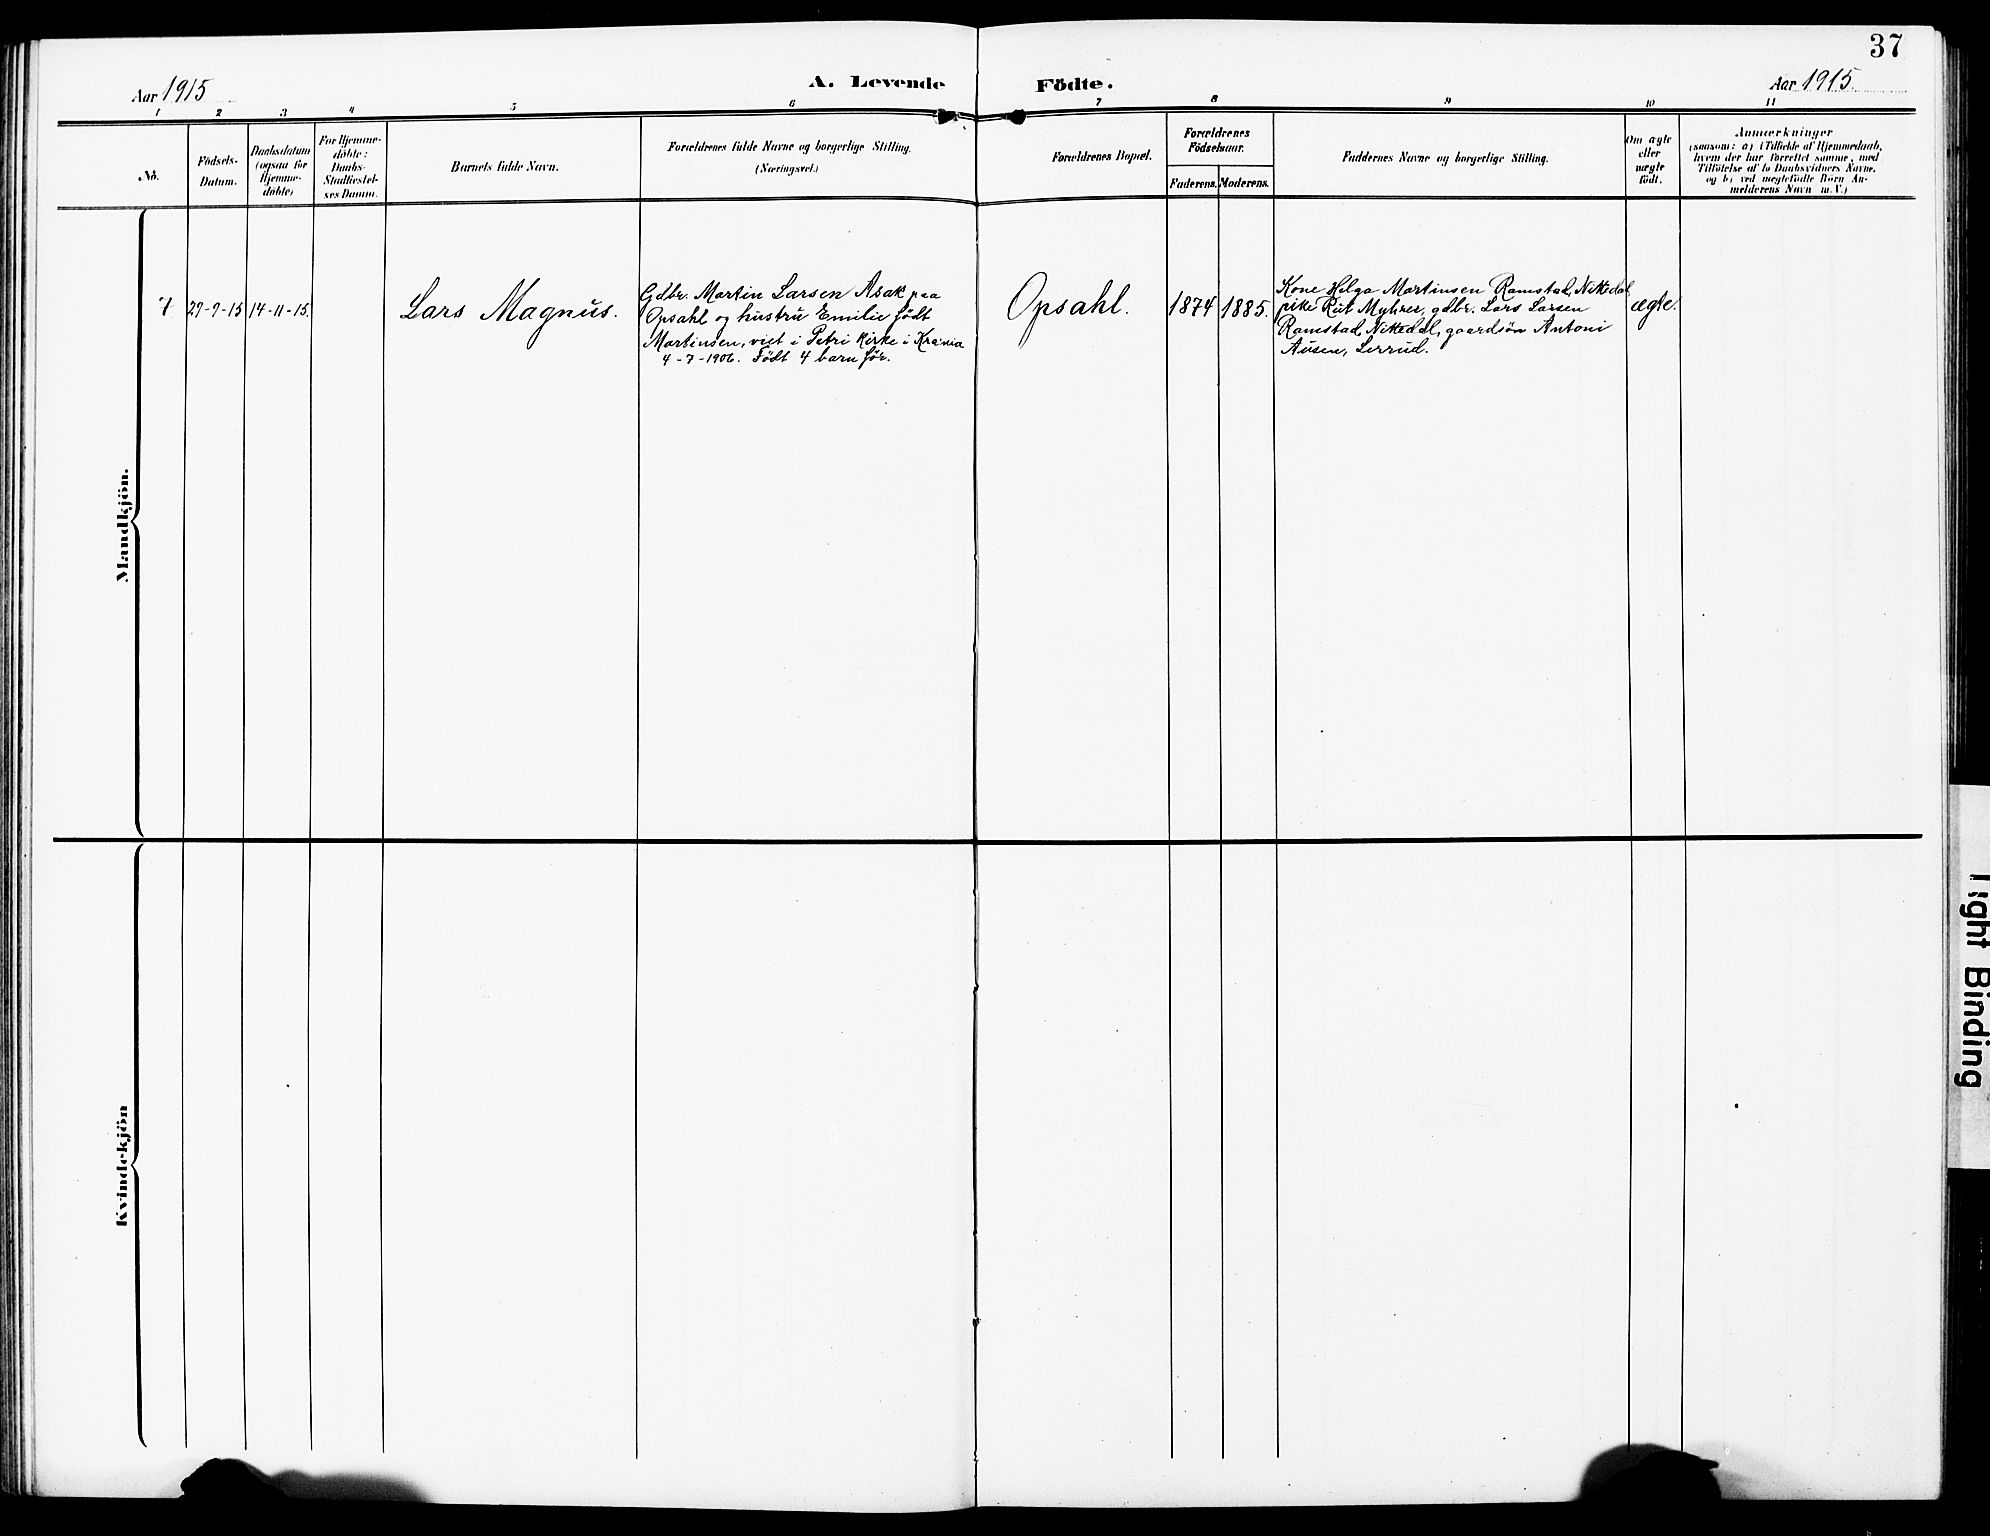 37
Aar 1915
A. Levende Födte.
Aar 1915.
1 2 3 4 5 6 7 8 9 10 11
No.
Födsels-
Datum.
Daabsdatum
(ogsaa for
Hjemme-
döbte)
For Hjemme-
döbte:
Daabs-
Stadfæstel-
ses Datum.
Barnets fulde Navn.
Forældrenes fulde Navne og borgerlige Stilling.
(Næringsvei.)
Forældrenes Bopæl.
Forældrenes
Födselsaar.
Faderens. Moderens.
Faddernes Navne og borgerlige Stilling.
Om ægte
eller
uægte
födt.
Anmærkninger
(saasom: a) i Tilfælde af Hjemmedaab,
hvem der har forrettet samme, med
Tilföielse af to Daabsvidners Navne,
og b) ved uægtefödte Börn An-
melderens Navn m. V.)
Mandkjön.
7
29-9-15
14-11-15.
Lars Magnus.
Gdbr. Martin Larsen Asak paa
Opsahl og hustru Emilie født
Martinsen, viet i Petri Kirke i Krania
4-7-1906. Født 4 barn før.
Opsahl.
1874
1885.
Kone Helga Martinsen Ramstad, Nittedal
pike Rut Myhrer, gdbr. Lars Larsen
Ramstad, Nittedal, gaardsøn Antoni
Ausen, Lerrud.
ægte.
Kvindekjön
Tight Binding